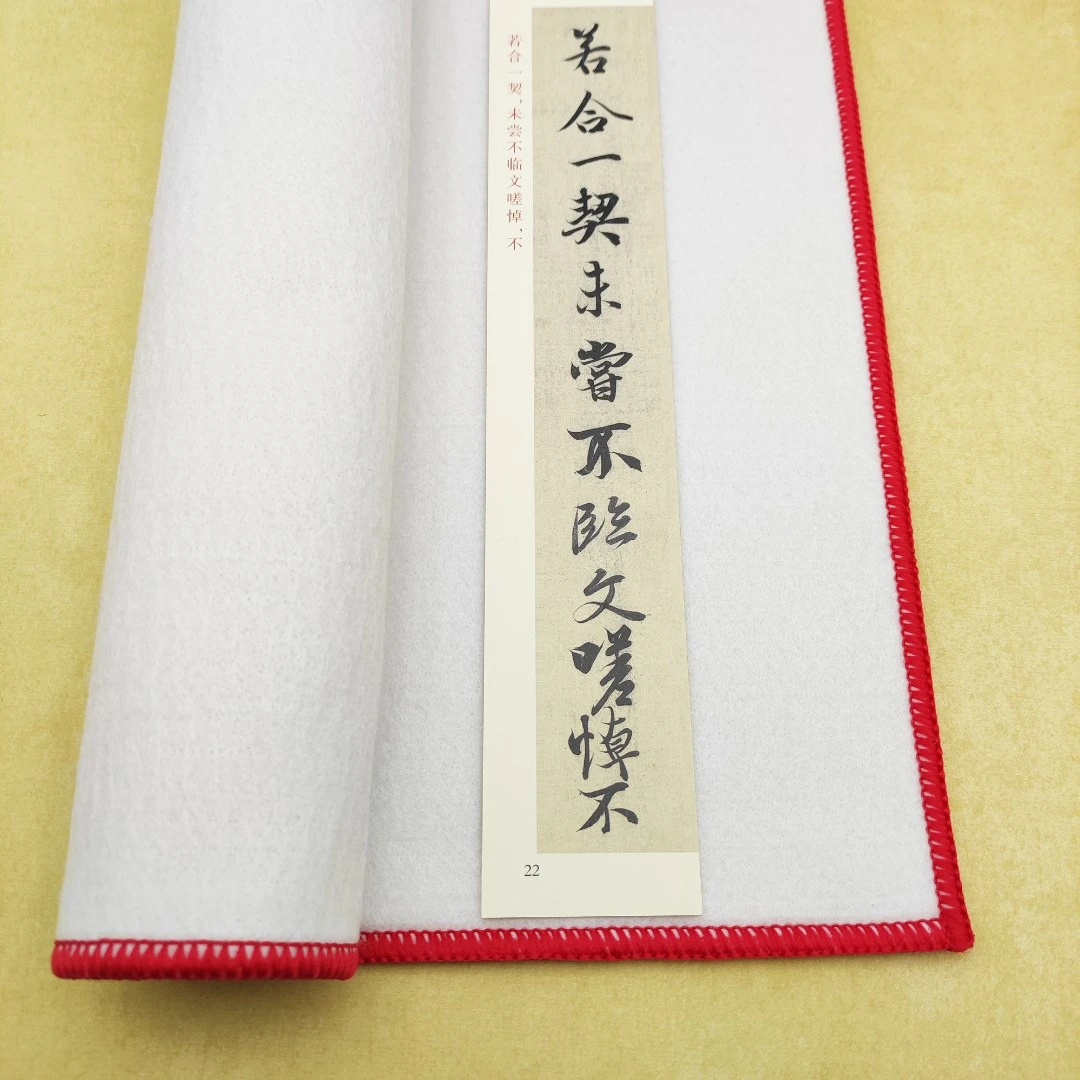 若合一契未嘗不臨文嗟悼不
若合一契，未尝不临文嗟悼，不
22